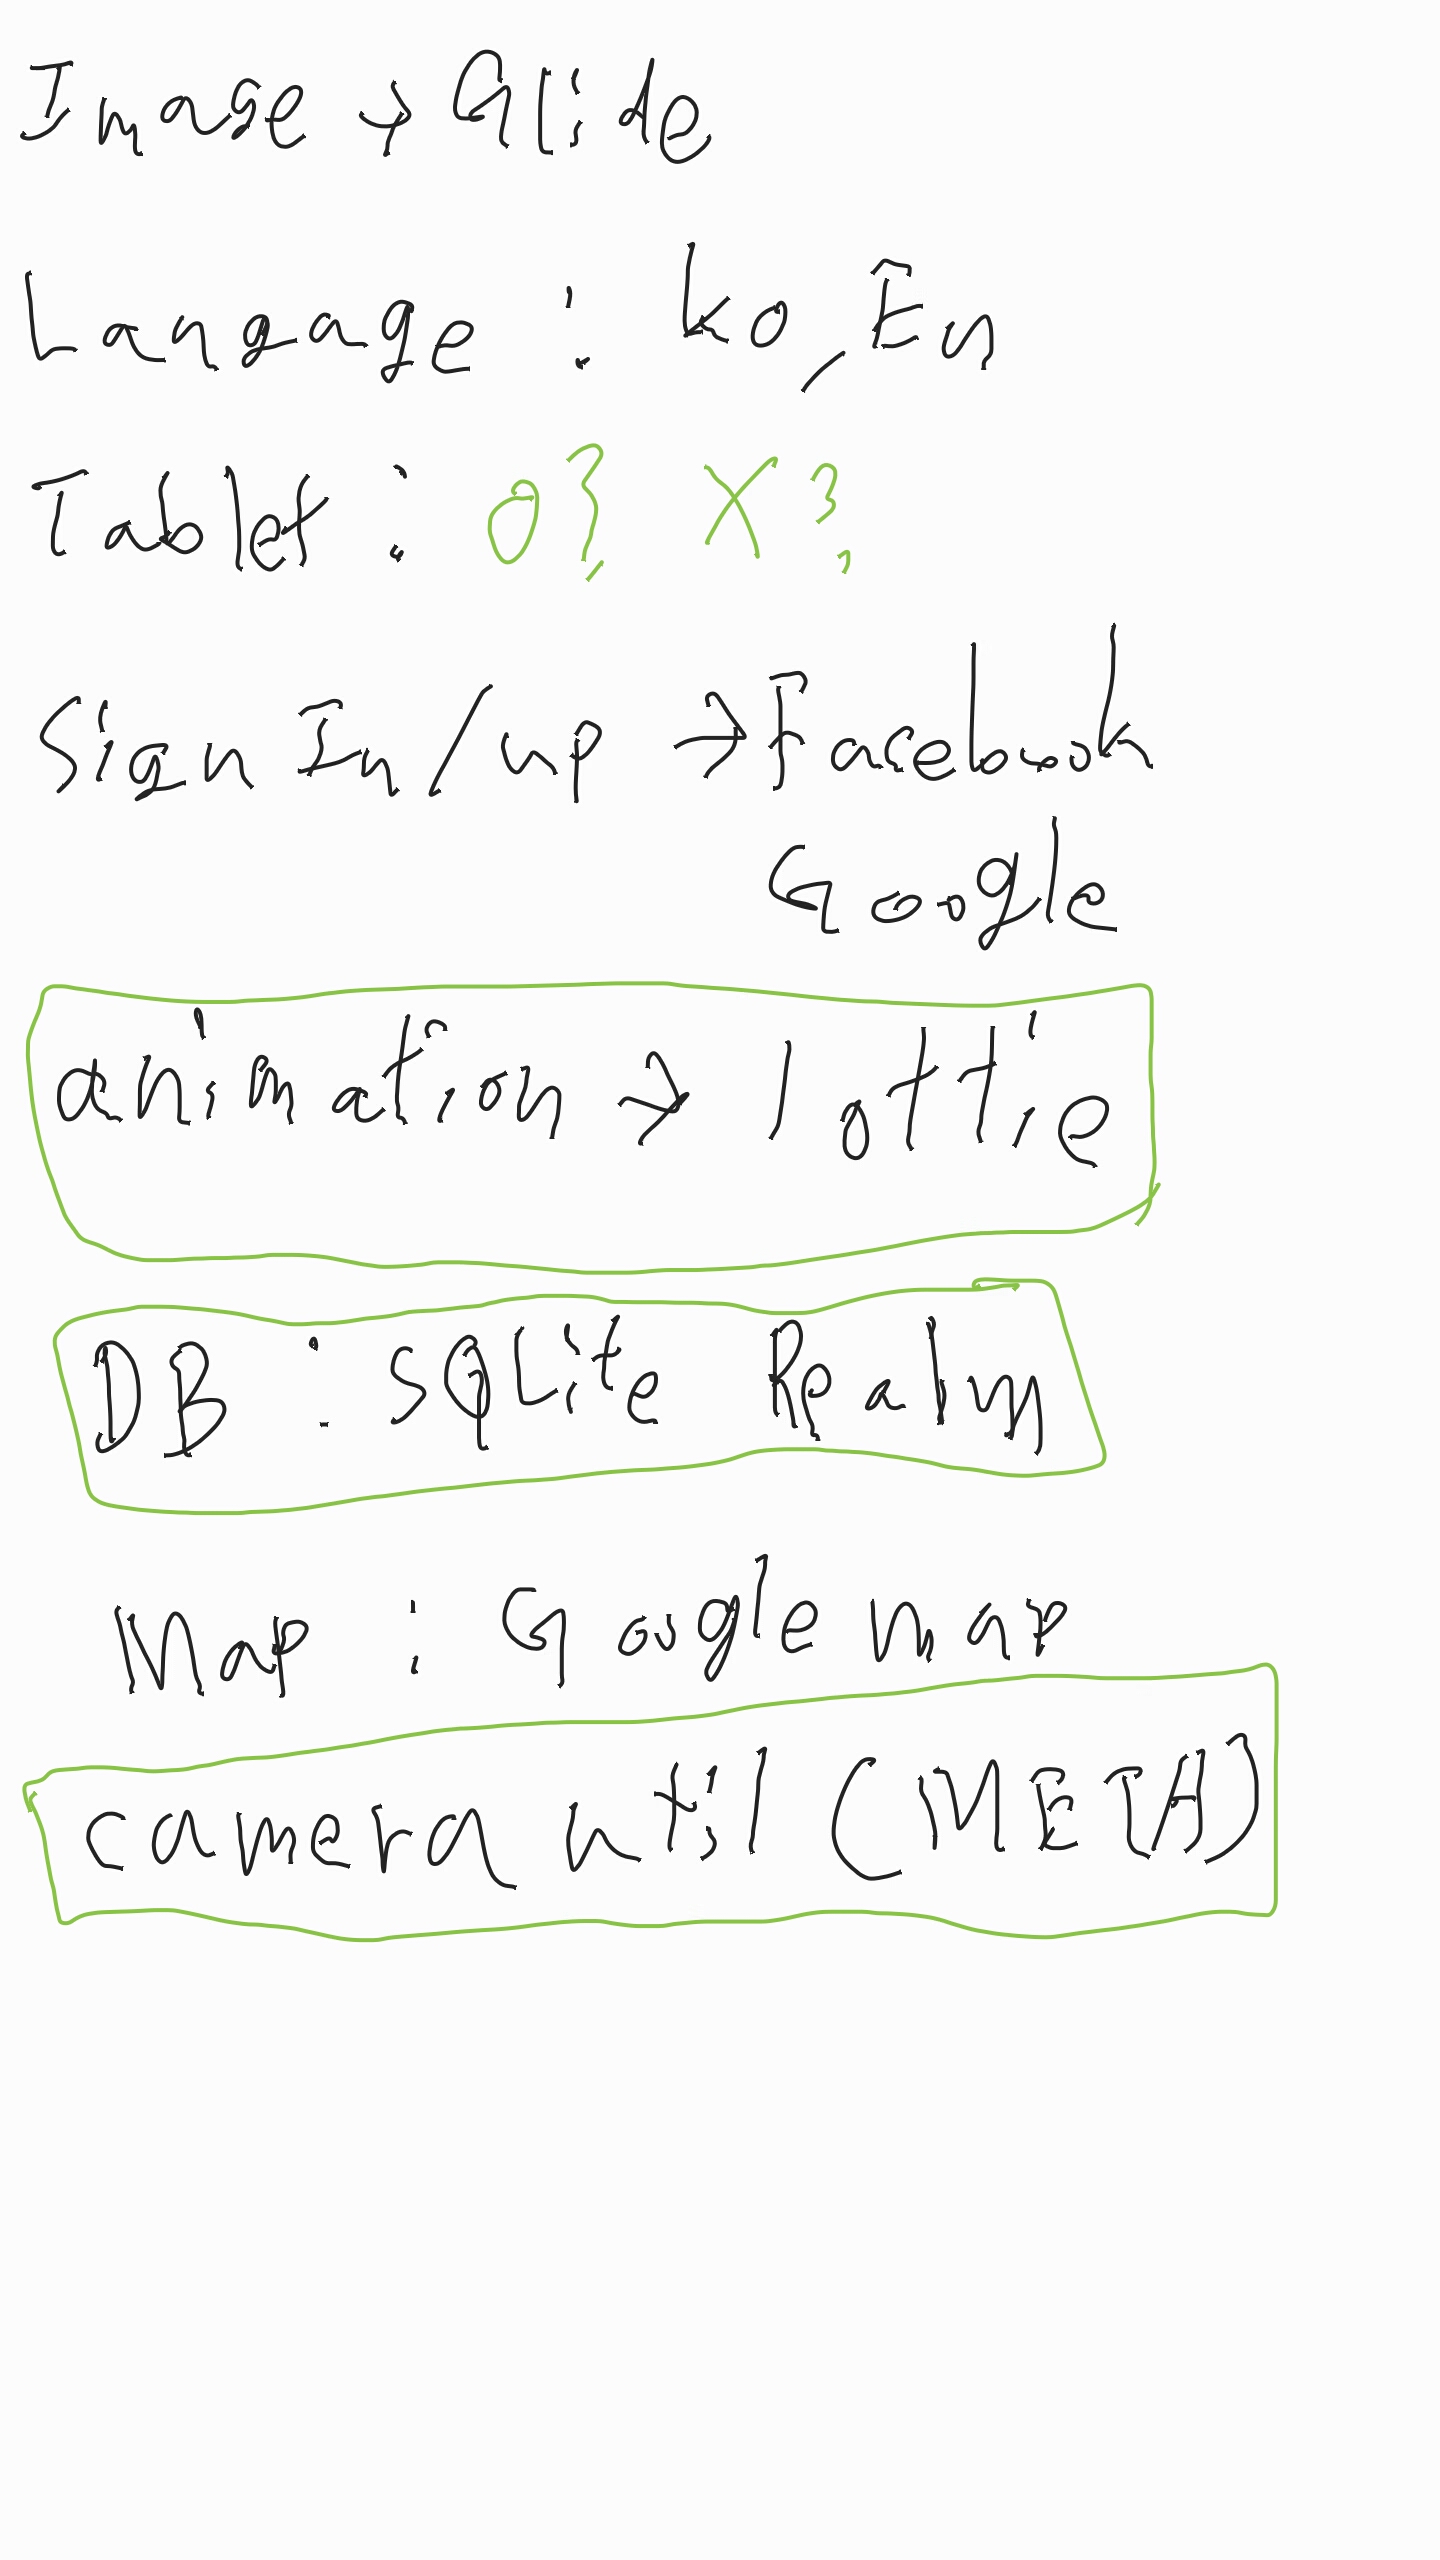 Image → Glide
Langage : ko, En
Tablet : O? X?
Sign In/up → Facebook
Google
animation → lottie
DB : SQLite Realm
Map : Google map
camera util (META)